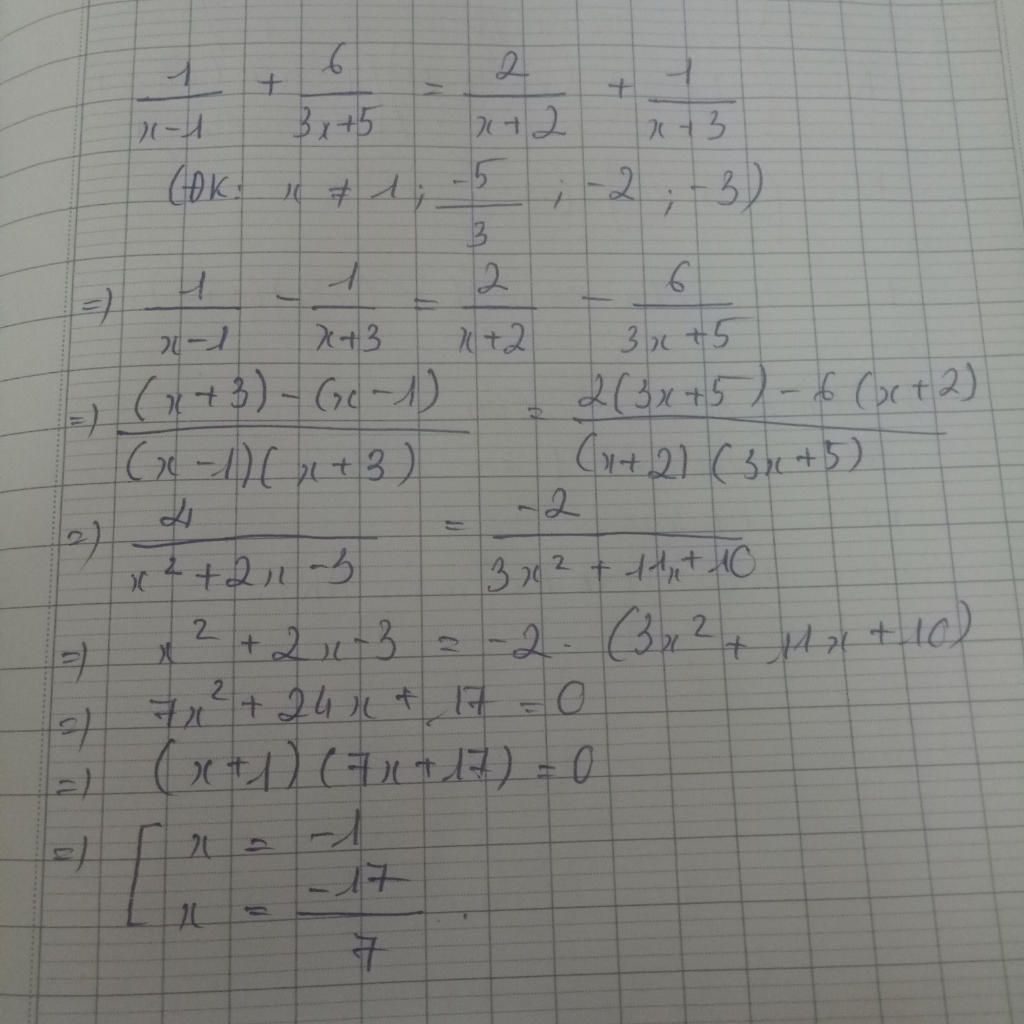 1/(x-1) + 6/(3x+5) = 2/(x+2) + 1/(x+3)
(ĐK: x ≠ 1; -5/3; -2; -3)
=) 1/(x-1) - 1/(x+3) = 2/(x+2) - 6/(3x+5)
=) ((x+3)-(x-1))/((x-1)(x+3)) = (2(3x+5)-6(x+2))/((x+2)(3x+5))
=) 4/(x²+2x-3) = -2/(3x²+11x+10)
=) x²+2x-3 = -2. (3x²+11x+10)
=) 7x²+24x+17=0
=) (x+1)(7x+17)=0
=) [ x = -1
x = -17/7.